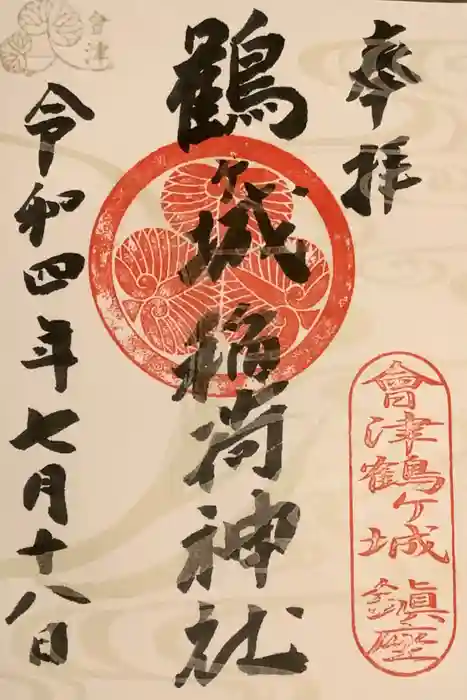 奉拝
會津鶴ケ城鎮座
鶴ケ城稲荷神社
令和四年七月十八日
會津